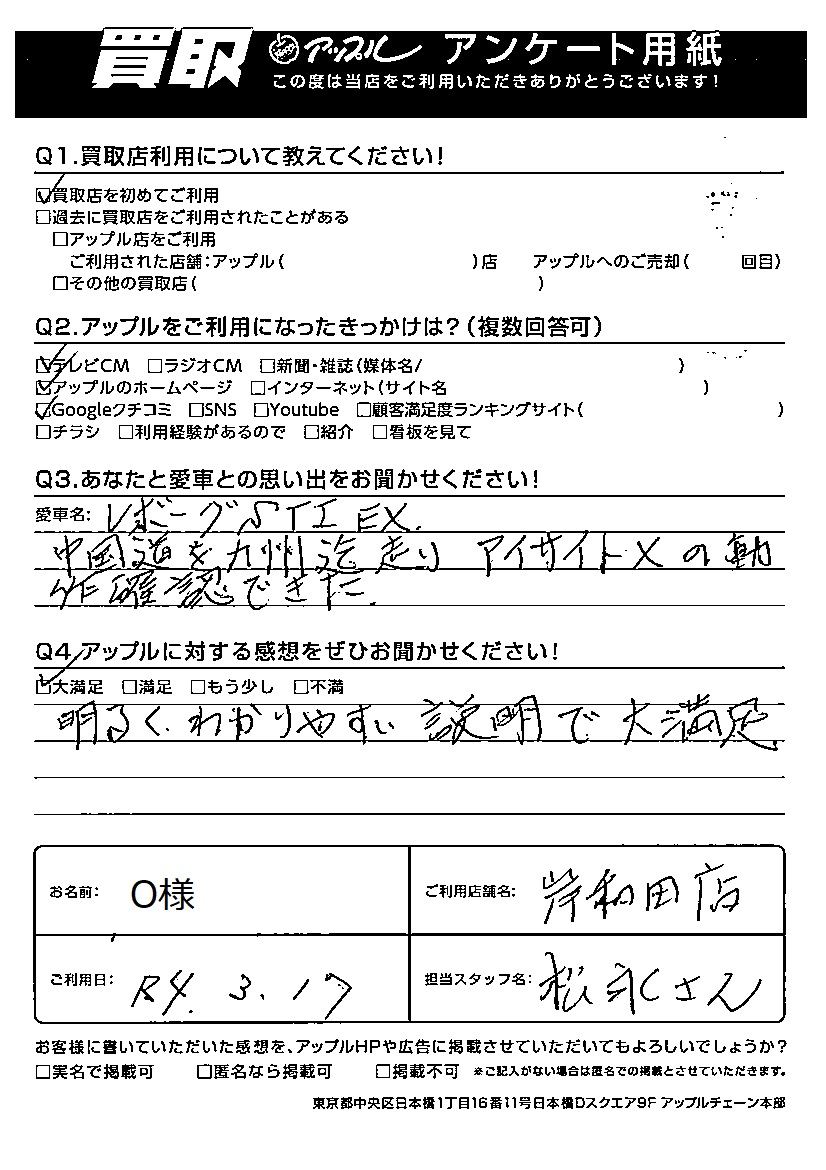 買取 アップル アンケート用紙
この度は当店をご利用いただきありがとうございます!
Q1.買取店利用について教えてください!
☑買取店を初めてご利用
□過去に買取店をご利用されたことがある
□アップル店をご利用
ご利用された店舗:アップル( )店 アップルへのご売却( 回目)
□その他の買取店( )
Q2.アップルをご利用になったきっかけは?(複数回答可)
☑テレビCM □ラジオCM □新聞・雑誌(媒体名/ )
☑アップルのホームページ □インターネット(サイト名 )
☑Googleクチコミ □SNS □Youtube □顧客満足度ランキングサイト( )
□チラシ □利用経験があるので □紹介 □看板を見て
Q3.あなたと愛車との思い出をお聞かせください!
愛車名: レボーグSTI EX.
中国道を九州迄走り アイサイトXの動
作確認できた.
Q4.アップルに対する感想をぜひお聞かせください!
☑大満足 □満足 □もう少し □不満
明るく、わかりやすい 説明で大満足.
お名前: O様 ご利用店舗名: 岸和田店
ご利用日: R4. 3. 17 担当スタッフ名: 松永さん
お客様に書いていただいた感想を、アップルHPや広告に掲載させていただいてもよろしいでしょうか?
□実名で掲載可 □匿名なら掲載可 □掲載不可 ※ご記入がない場合は匿名での掲載とさせていただきます。
東京都中央区日本橋1丁目16番11号日本橋Dスクエア9F アップルチェーン本部